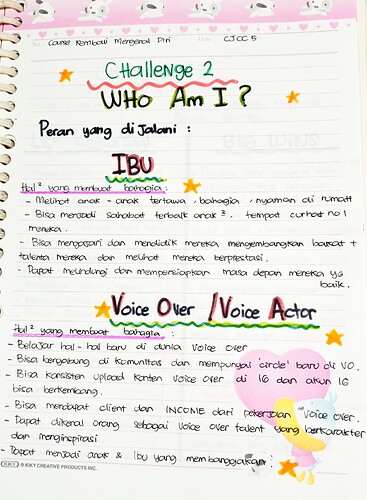 Course Kembali Mengenal Diri
CJCC 5
Challenge 2
WHO Am I ?
Peran yang dijalani :
IBU
Hal² yang membuat bahagia :
- Melihat anak-anak tertawa, bahagia, nyaman di rumah
- Bisa menjadi sahabat terbaik anak², tempat curhat no 1
mereka.
- Bisa mengajari dan mendidik mereka mengembangkan bakat +
talenta mereka dan melihat mereka berprestasi.
- Dapat melindungi dan mempersiapkan masa depan mereka yg
baik.
Voice Over / Voice Actor
Hal² yang membuat bahagia :
- Belajar hal-hal baru di dunia Voice over
- Bisa bergabung di komunitas dan mempunyai 'circle' baru di VO.
- Bisa konsisten upload konten voice over di IG dan akun IG
bisa berkembang.
- Bisa mendapat client dan INCOME dari pekerjaan Voice over.
- Dapat dikenal orang sebagai Voice over talent yang berkarakter
dan menginspirasi
- Dapat menjadi anak & Ibu yang membanggakan.
KIKY © KIKY CREATIVE PRODUCTS INC.